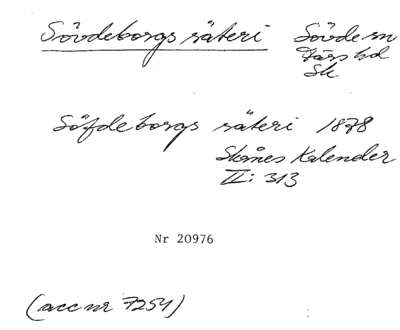 Sövdeborgs säteri Sövde sn
Färs hd
Sk
Söfdeborgs säteri 1878
Skånes Kalender
II: 313
Nr 20976
(acc nr 7254)